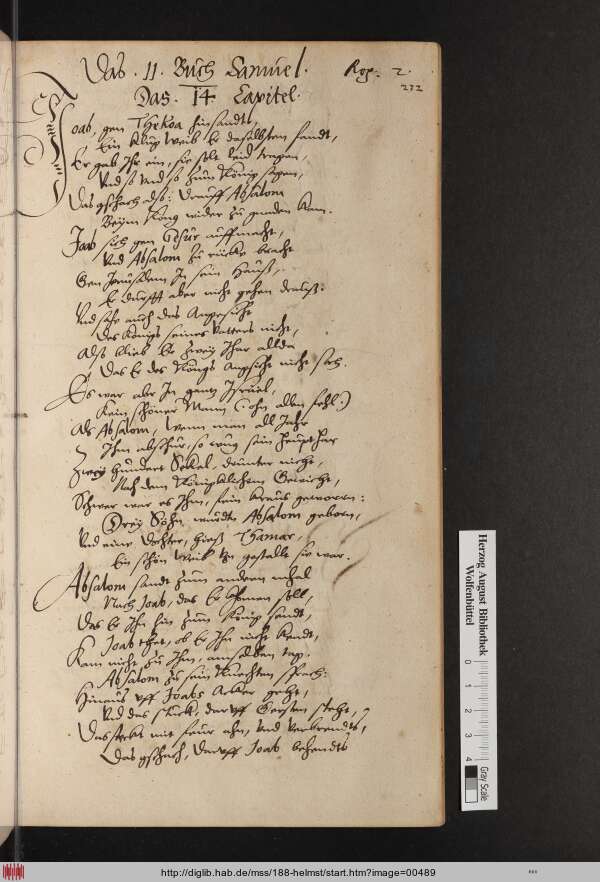 Das . II. Buch Samuel.
Reg: 2.
Das. 14 Capitel.
232
Joab, gen Thekoa hinsandt,
Ein klug Weib Er daselbsten fandt,
Er gab Ihr ein, sie solt leid tragen,
Vnd so vnd so zum König sagen,
Das gschach also: drauff Absalom
Beym König wider zu gnaden kam.
Joab sich gen Gesur auffmacht,
Vnd Absalom zu rücke bracht
Gen Jerusalem In sein Hauß,
Er durfft aber nicht gehen drauß:
Vnd sahe auch das Angesicht
Des Königs seines Vatters nicht,
Alß blieb Er zwey Jhar allda
Das Er des Königs Angsicht nicht sah.
Es war aber In gantz Israel,
Kein schöner Mann (ohn allen fehl)
Als Absalom, Wenn man all Jahr
Ihm abschur, so wug sein heupthar
Zwey hundert Sekel, drunter nicht,
Nach dem Königklichem Gewicht,
Schwer war es Ihm, sein kraus geworrn:
Drey Söhn wurdn Absalom geborn,
Vnd eine Dochter, hieß Thamar,
Ein schön Weib gestalt sie war.
Absalom sandt zum andern mhal
Nach Joab, das Er kommen soll,
Das Er Ihn hin zum König sandt,
Joab thet, ob Er Ihn nicht kandt,
Kam nicht zu Ihm, am selben tag.
Absalom zu sein Knechten sprach:
Hinaus vff Joabs Acker geht,
Vnd das stück, daruff Gersten steht,
Das steckt mit feur ahn, vnd verbrendts,
Das gschach, daruff Joab behendts
Herzog August Bibliothek
Wolfenbüttel
0 1 2 3 4
Gray Scale
http://diglib.hab.de/mss/188-helmst/start.htm?image=00489